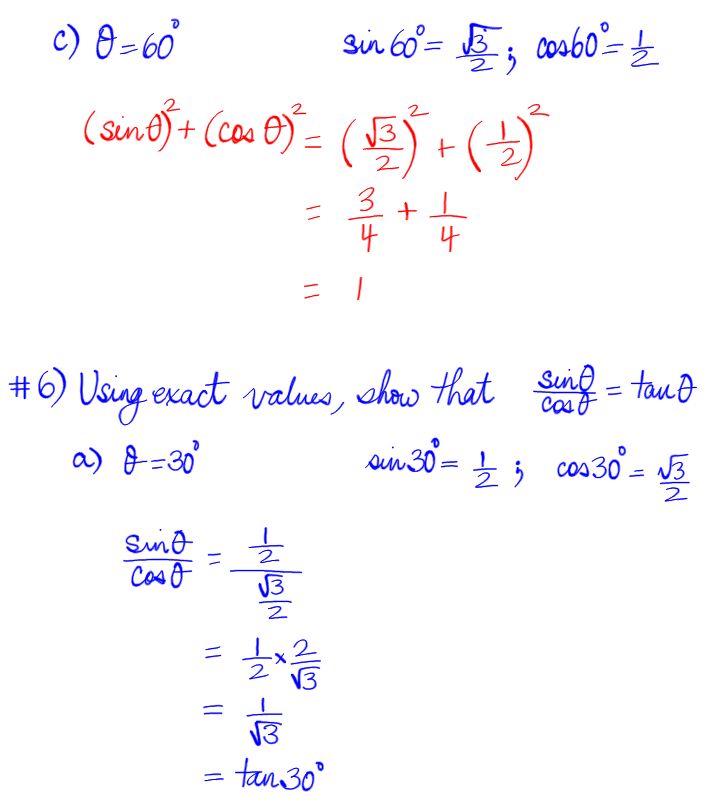 c) θ=60° sin 60°= √3/2 ; cos60°= 1/2
(sinθ)²+(cos θ)² = (√3/2)² + (1/2)²
= 3/4 + 1/4
= 1
#6) Using exact values, show that sinθ/cosθ = tanθ
a) θ=30° sin30°= 1/2 ; cos30°= √3/2
sinθ/cosθ = (1/2)/(√3/2)
= 1/2 × 2/√3
= 1/√3
= tan30°